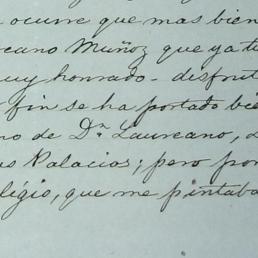 ocurre que mas bien
cano Muñoz que ya t
uy honrado - desfrut
fin se ha portado bie
no de Dn. Laureano,
as Palacios; pero por
ligio, que me pintaba